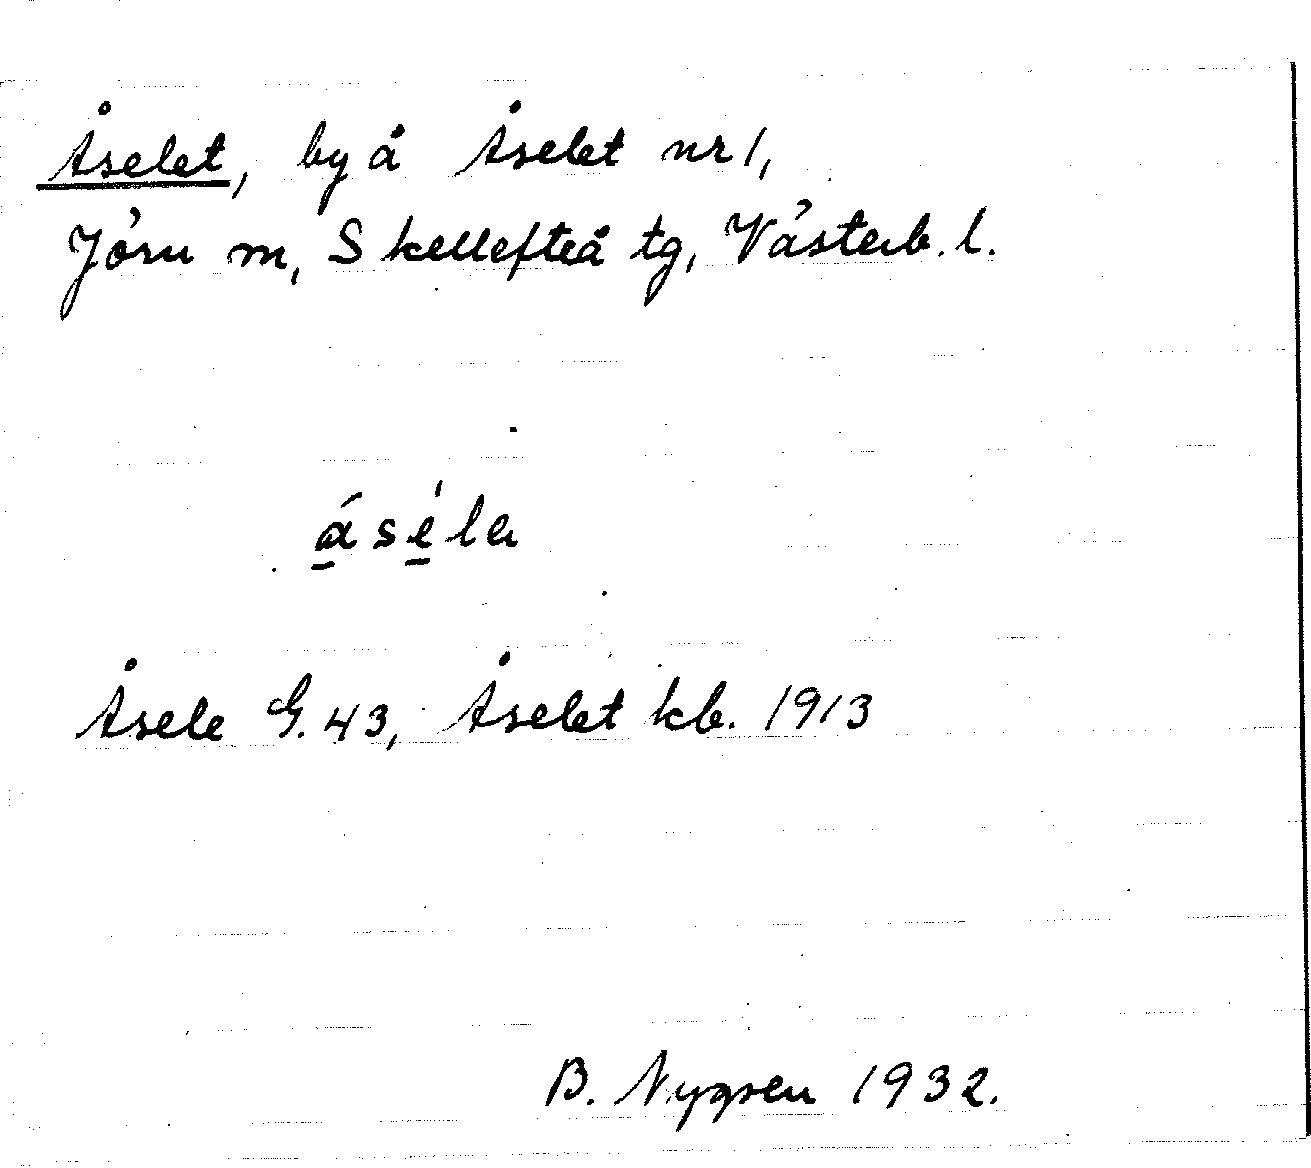 Åselet, by å Åselet nr 1,
Jörn m, Skellefteå tg, Västerb. l.
á̱sé̱la
Åsele G. 43, Åselet kb. 1913
B. 1932.